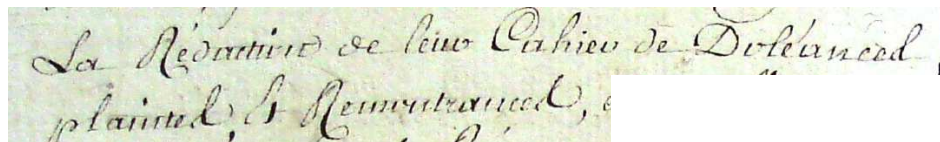 La Rédaction de leur Cahier de Doléances
plaintes Et Remontrances,